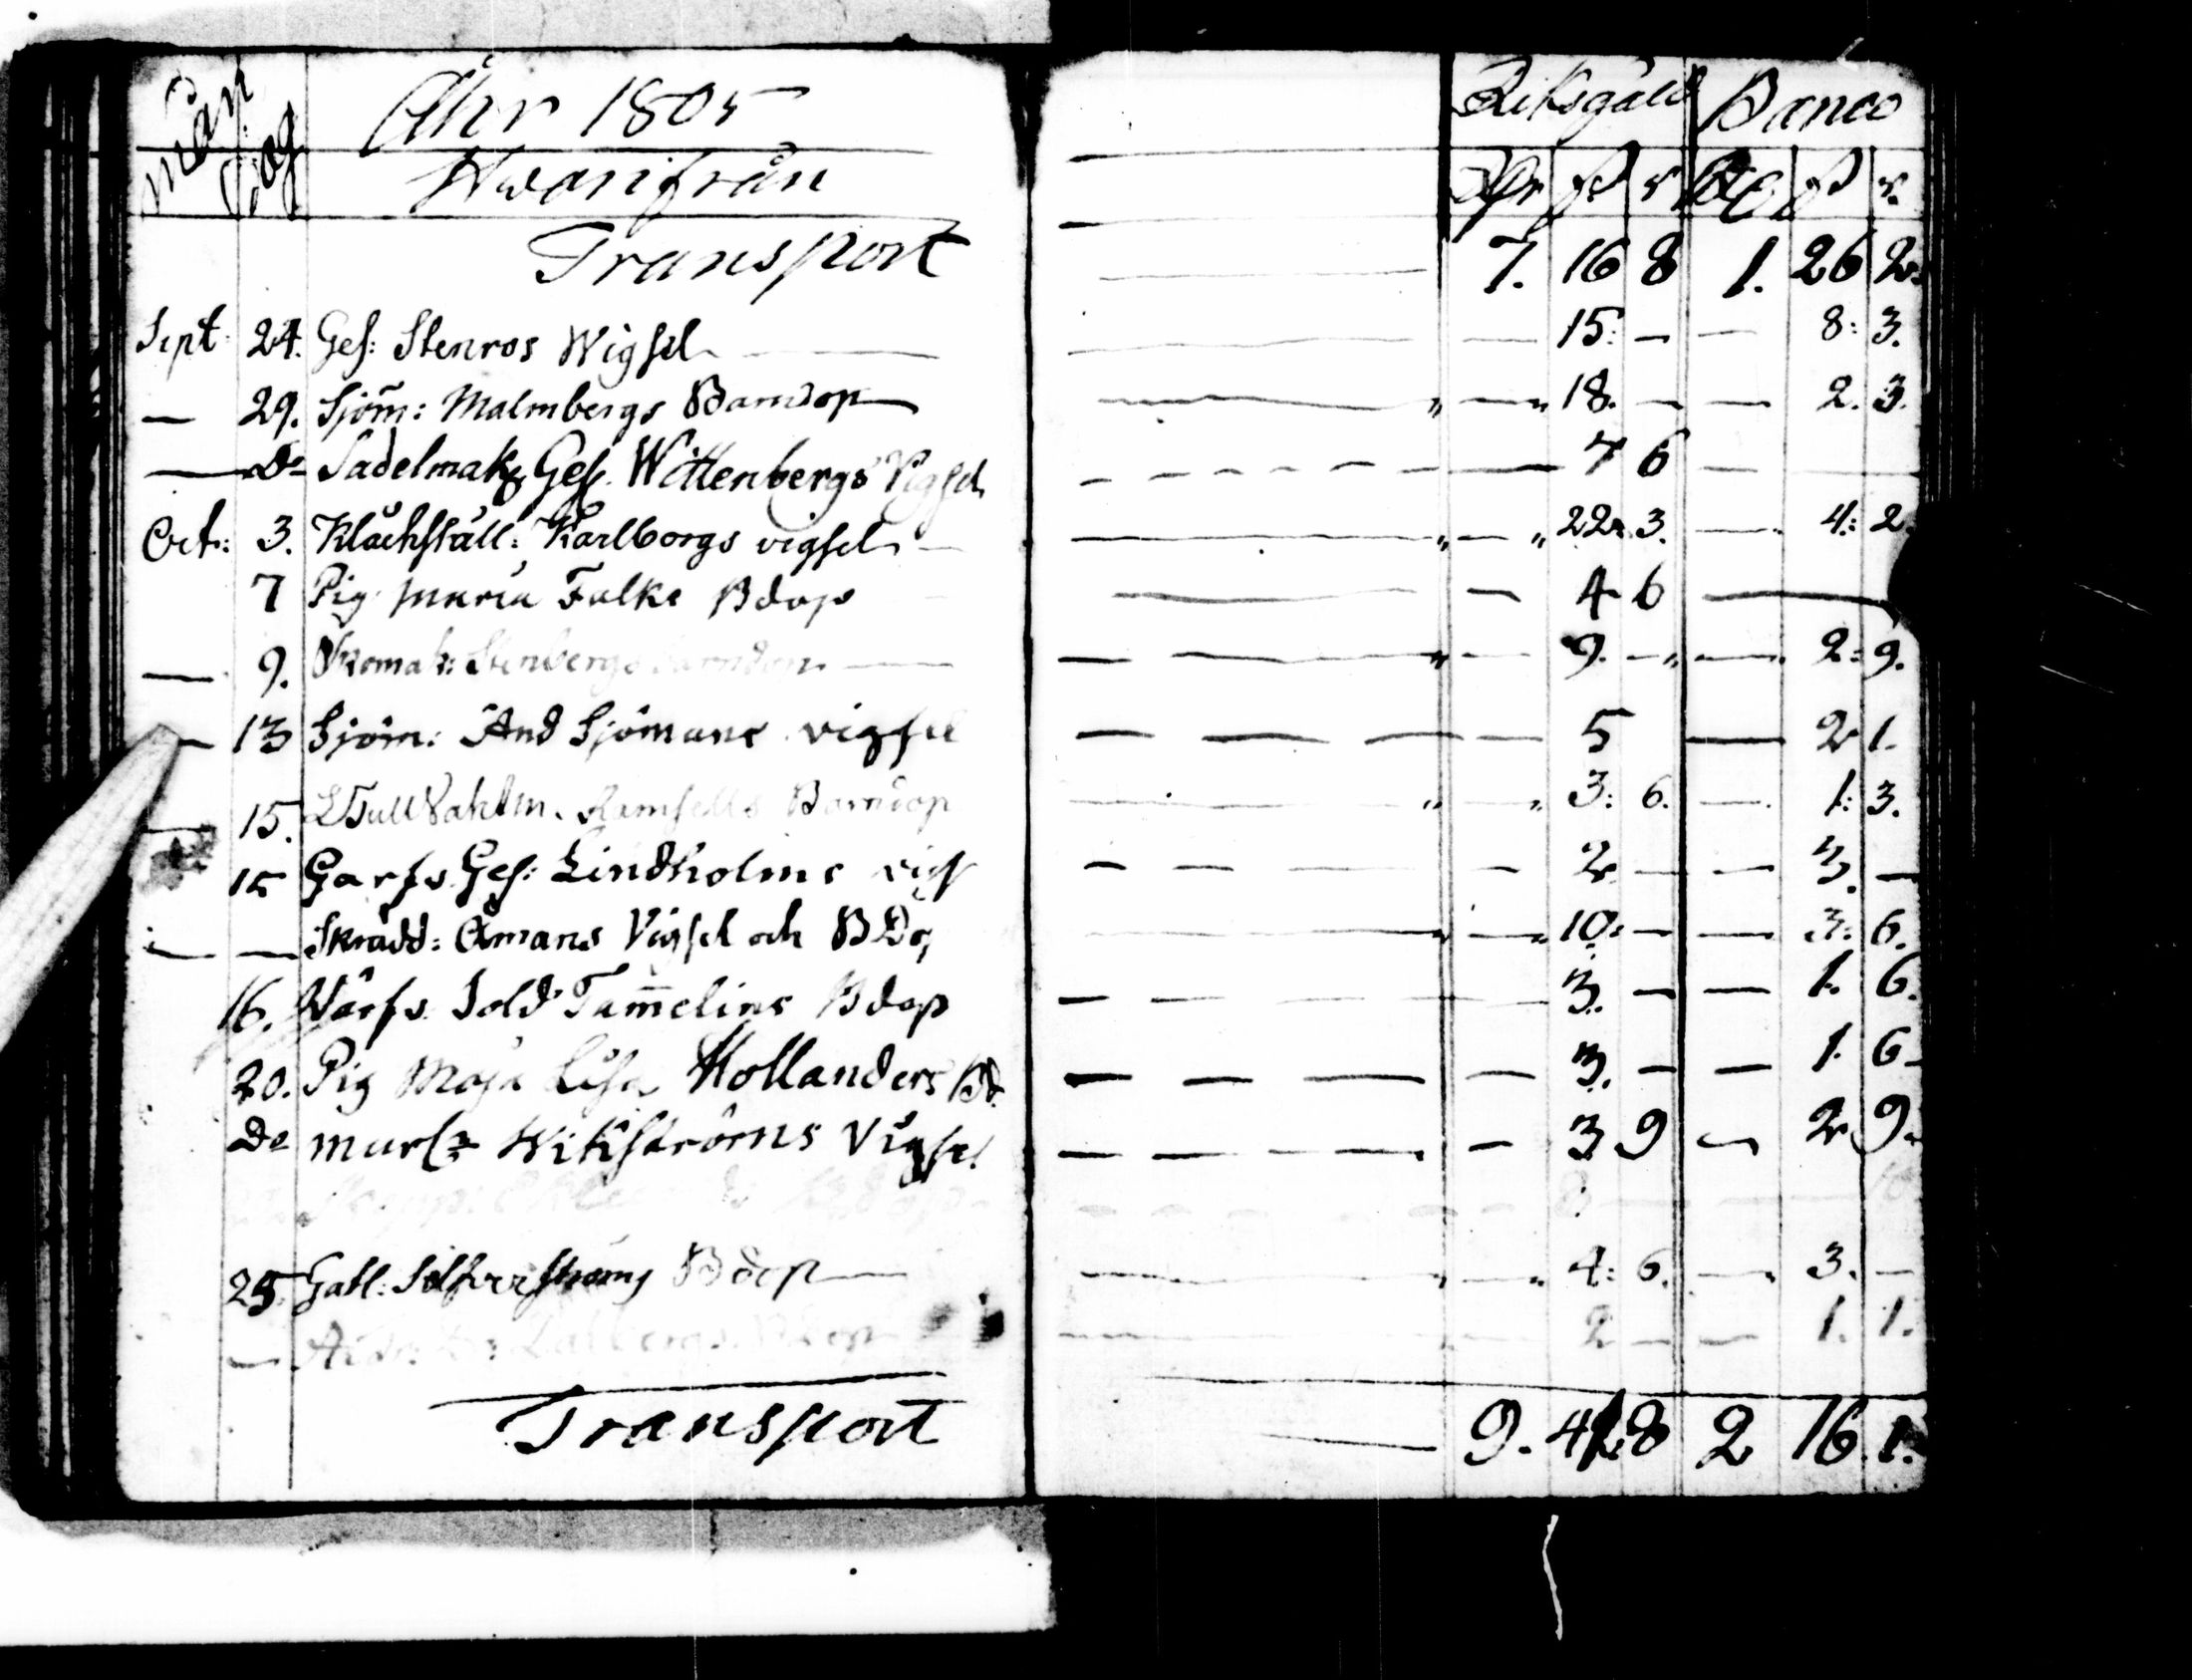 Mån Dag Åhr 1805 Riksgäld Banco
Hwarifrån Rdr ß r Rd ß r.
Transport 7. 16 8 1. 26 2.
Sept: 24. Ges: Stenros Wigsel — 15: — — 8: 3.
— 29. Sjöm: Malmbergs Barndop — 18. — — 2. 3.
— Do Sadelmak Ges. Wittenbergs Vigsel — 7 6 —
Oct: 3. Karlborgs vigsel — 22. 3. — 4: 2.
7 Pig Maria Falks Bdop — 4 6 —
— 9. Skomak: Stenbergs barndop — 9. — — 2: 9.
— 13 Sjöm: And Sjömans vigsel — 5 — 2 1.
— 15. Ramsells Barndop — 3: 6. — 1: 3.
15 Garfv. Ges: Lindholms vigs — 2 — — 3. —
— — Skrädd: Åmans Vigsel och BDop — 10: — — 3: 6.
16. Wärfv. Sold Tam̄elins Bdop — 3. — — 1. 6.
20. Pig Maja Lisa Hollanders Bd. — 3. — — 1. 6
Do Wikströms Vigsel — 3 9 — 2 9.
25. Silfverströms Bdop — 4: 6. — 3. —
— Bdop — 2 — — 1. 1.
Transport 9. 8 2 16. 1.